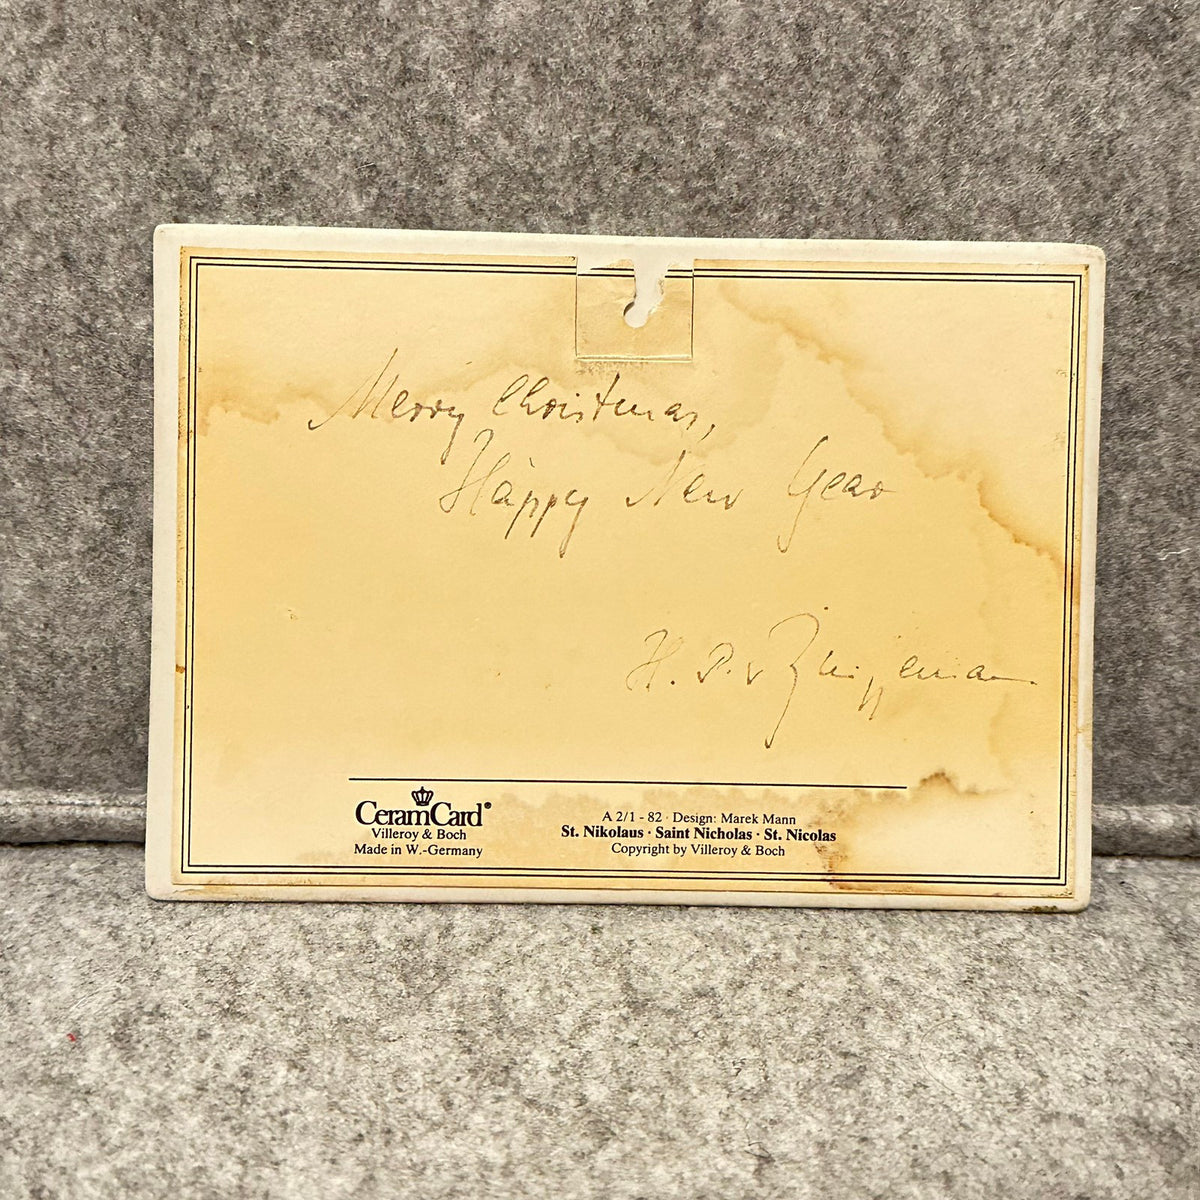 Merry Christmas,
Happy New Year
H. P. v
CeramCard®
Villeroy & Boch
Made in W.-Germany
A 2/1 - 82 · Design: Marek Mann
St. Nikolaus · Saint Nicholas · St. Nicolas
Copyright by Villeroy & Boch